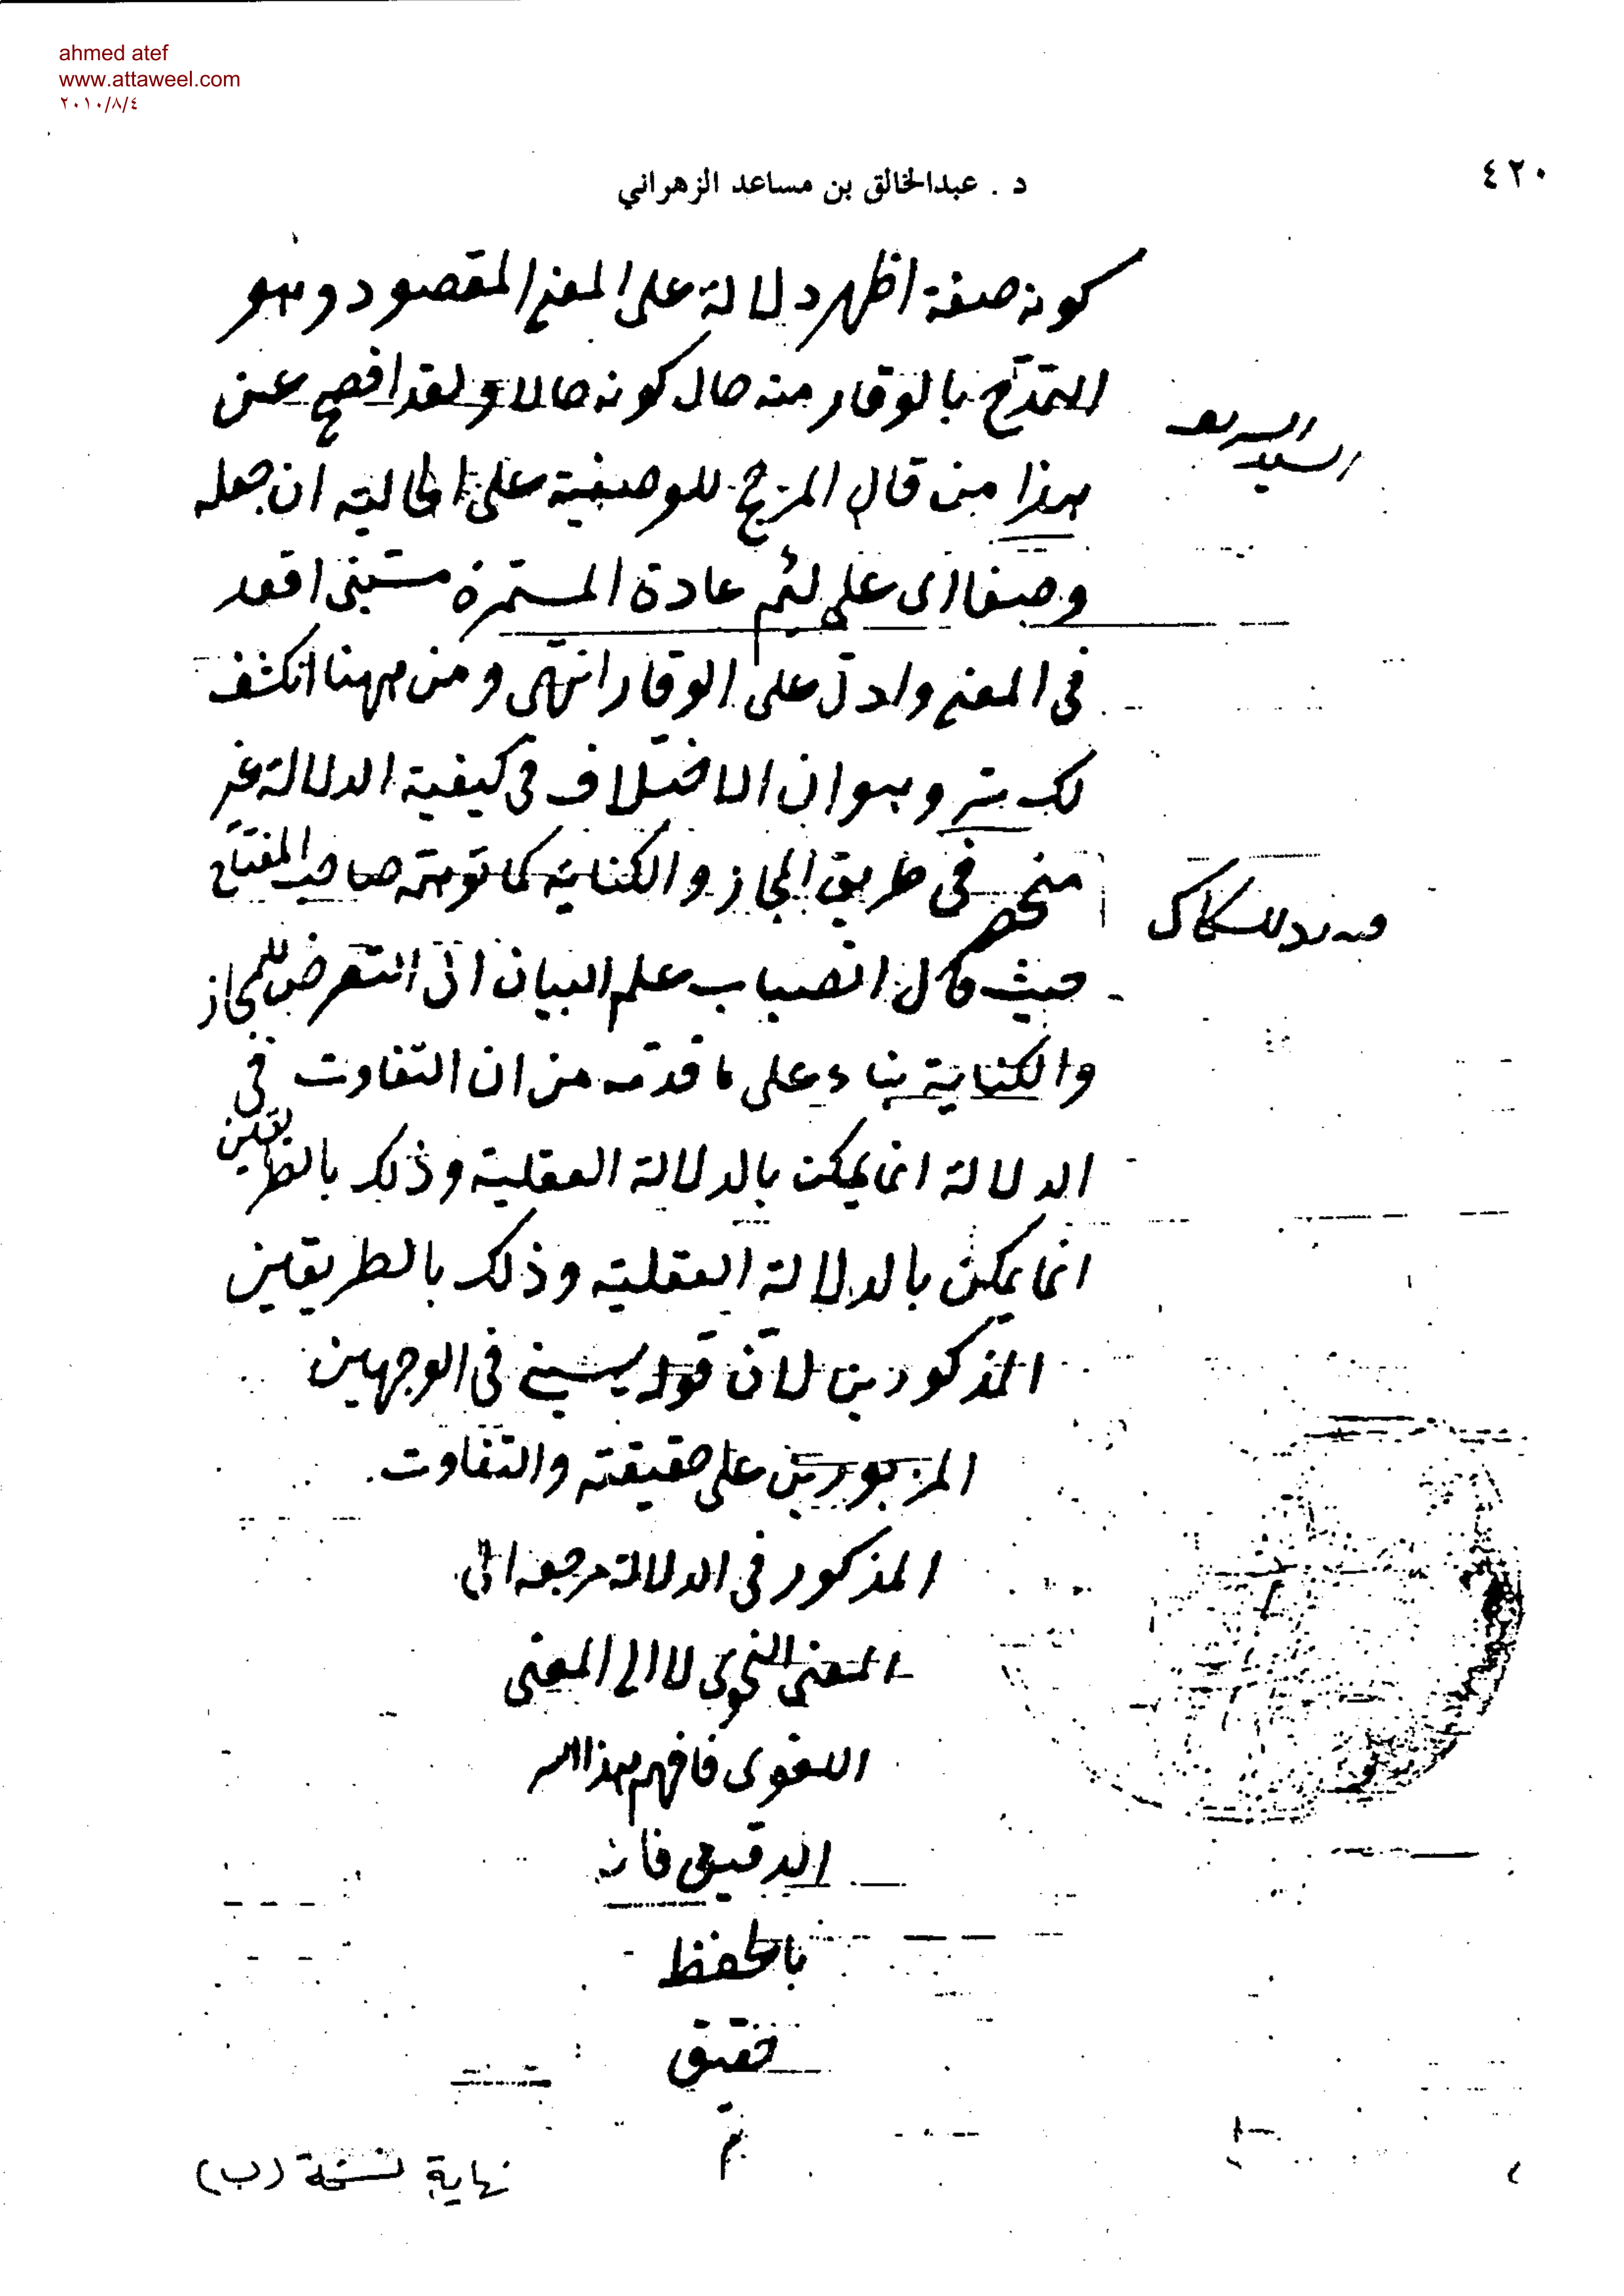 ahmed atef
www.attaweel.com
٢٠١٠/٨/٤
٤٢٠
د . عبدالخالق بن مساعد الزهراني
كونه صفة اظهر دلالة على المعنى المقصود وهو
التمدّح بالوقار منه حال كونه حالا ولقد افصح عن
السيد الشريف
هذا من قال المرجح للوصفية على الحالية ان جعله
وصفا اى على لئيم عادة المستمرة يسبنى اقعد
فى المعنى وادلّ على الوقار انتهى ومن ههنا انكشف
لك سر وهو ان الاختلاف فى كيفية الدلالة غير
منحصر فى طريق المجاز والكناية كما توهمه صاحب المفتاح
فيه رد للسكاكى
حيث قال انصباب علم البيان الى التعرض للمجاز
والكناية بناء على ما قدمه من ان التفاوت فى
الدلالة انما يمكن بالدلالة العقلية وذلك بالطريقين
انما يمكن بالدلالة العقلية وذلك بالطريقين
المذكورين لانّ قوله يسبنى فى الوجهين
المزبورين على حقيقته والتفاوت
المذكور فى الدلالة مرجعه الى
المعنى النحوى لا الى المعنى
اللغوى فافهم هذا السر
الدقيق فانه
بالحفظ
حقيق
تم
نهاية نسخة (ب)